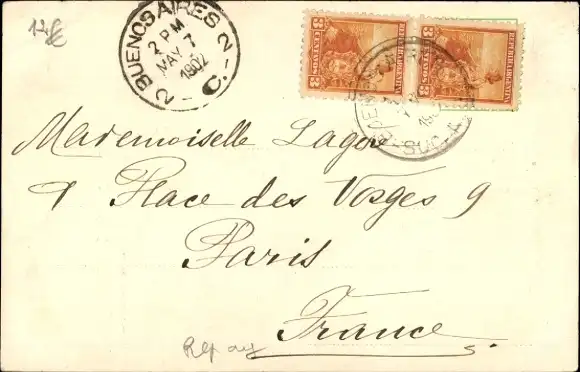 12€
BUENOS AIRES 2
2 PM
MAY 7
1902
2 - C. - 2
REPUBLICA ARGENTINA
3 CENTAVOS 3
REPUBLICA ARGENTINA
3 CENTAVOS 3
SUC
190
Mademoiselle Lagove
9 Place des Vosges 9
Paris
France